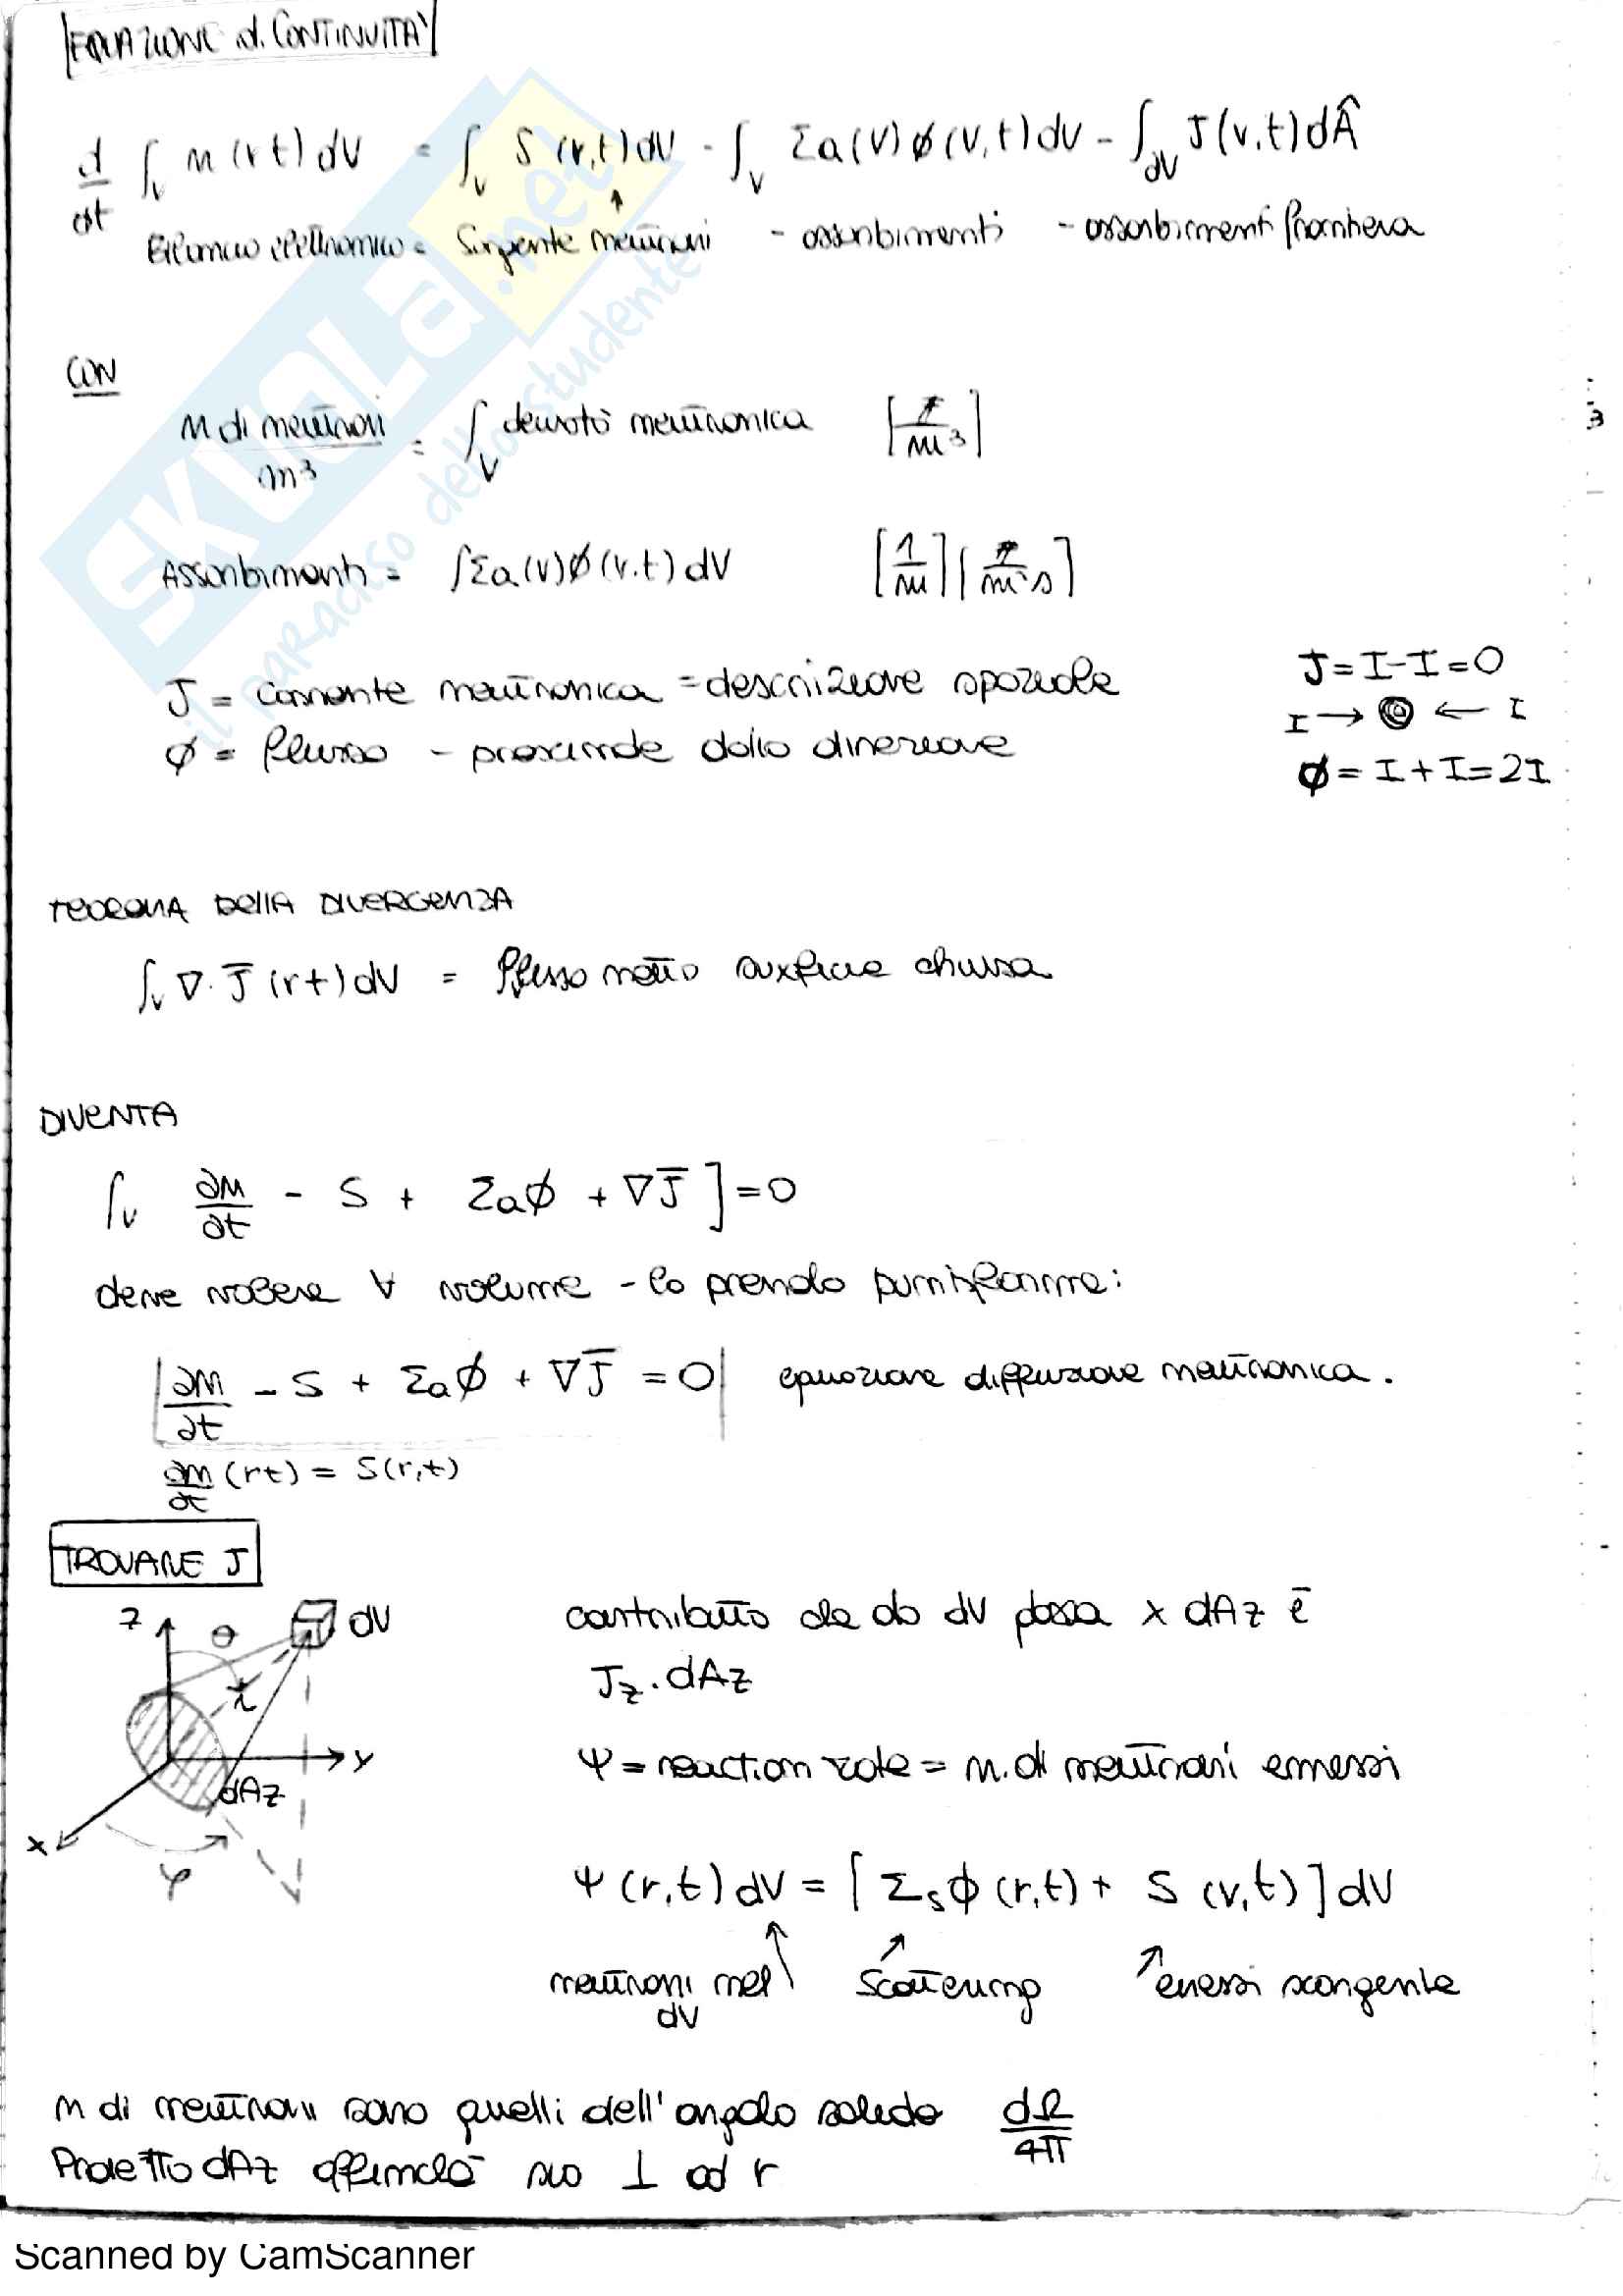 EQUAZIONE di CONTINUITA'
d/dt ∫v n (r t) dV = ∫v S (r,t) dV - ∫v Σa (V) φ (V,t) dV - ∫∂V J (v,t) dÂ
Bilancio = Sorgente neutroni - assorbimenti - assorbimenti frontiera
CON
n di neutroni / m³ = ∫V densità neutronica [ /m³]
Assorbimenti = ∫Σa (V) φ (V,t) dV [1/m] [ /m²s]
J = corrente neutronica = descrizione spaziale
J = I - I = 0
I → ← I
φ = flusso - prescinde dalla direzione
φ = I + I = 2I
TEOREMA DELLA DIVERGENZA
∫v ∇· J̄ (r t) dV = flusso netto superficie chiusa
DIVENTA
∫v ∂n/∂t - S + Σaφ + ∇J̄ ] = 0
deve valere ∀ volume - lo prendo puntiforme:
∂n/∂t - S + Σaφ + ∇J̄ = 0 equazione diffusione neutronica.
∂n/∂t (r t) = S(r,t)
TROVARE J
z θ dV
r
y
dAz
x
φ
contributo che da dV passa x dAz è
Jz · dAz
Ψ = reaction rate = n. di neutroni emessi
Ψ (r,t) dV = [ Σsφ (r,t) + S (v,t) ] dV
neutroni nel dV Scattering emessi sorgente
n di neutroni sono quelli dell'angolo solido dΩ/4π
Proietto dAz affinchè sia ⊥ ad r
SKUOLA.net
il paradiso dello studente
Scanned by CamScanner